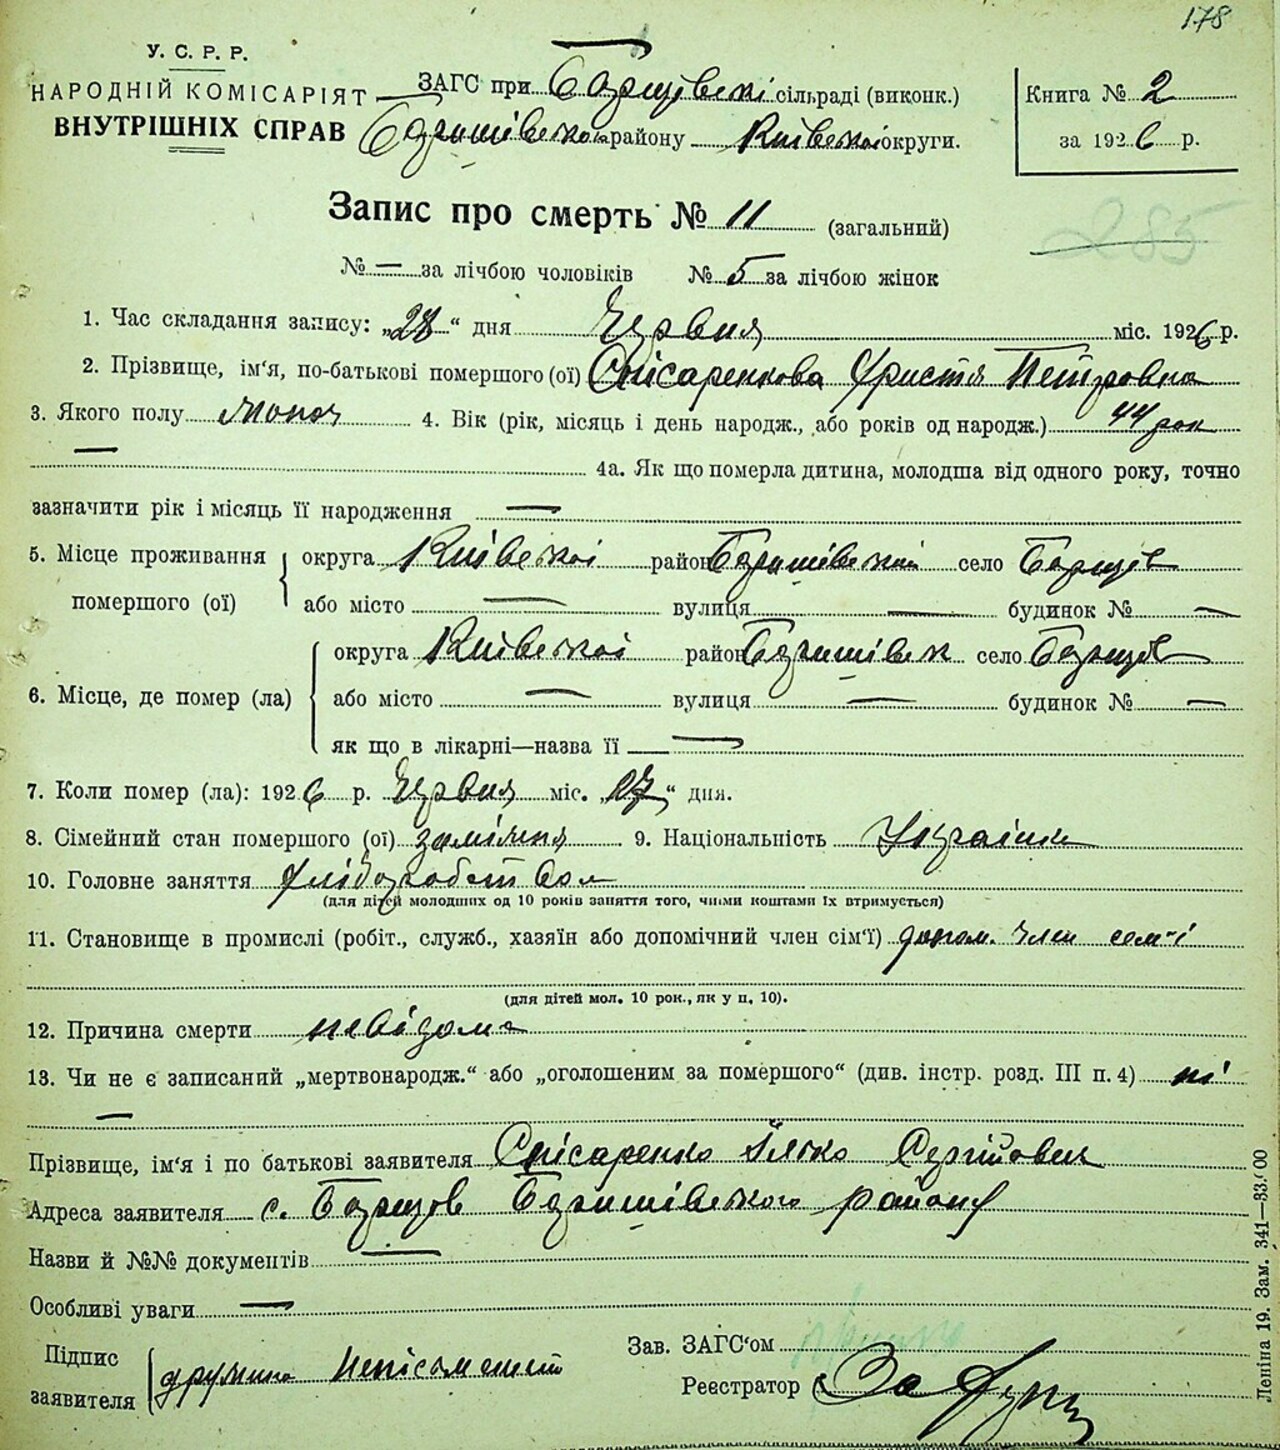 178
У. С. Р. Р.
НАРОДНІЙ КОМІСАРІЯТ
ВНУТРІШНІХ СПРАВ
ЗАГС при Борщівській сільраді (виконк.)
району Київської округи.
Книга № 2
за 1926 р.
Запис про смерть № 11 (загальний)
285
№ — за лічбою чоловіків № 5 за лічбою жінок
1. Час складання запису: „28“ дня Червня міс. 1926 р.
2. Прізвище, ім'я, по-батькові помершого (ої) Слісаренкова Христя Петровна
3. Якого полу жіноч 4. Вік (рік, місяць і день народж., або років од народж.) 44 рок
— 4а. Як що померла дитина, молодша від одного року, точно
зазначити рік і місяць її народження —
5. Місце проживання помершого (ої) округа Київської район село Борщів
або місто — вулиця — будинок № —
6. Місце, де помер (ла) округа Київської район село Борщів
або місто — вулиця — будинок № —
як що в лікарні—назва її —
7. Коли помер (ла): 1926 р. Червня міс. „27“ дня.
8. Сімейний стан помершого (ої) заміжня 9. Національність Українка
10. Головне заняття хліборобством
(для дітей молодших од 10 років заняття того, чиїми коштами їх втримується)
11. Становище в промислі (робіт., служб., хазяїн або допомічний член сім'ї) допом. член сем'ї
(для дітей мол. 10 рок., як у п. 10).
12. Причина смерти невідома
13. Чи не є записаний „мертвонародж.“ або „оголошеним за помершого“ (див. інстр. розд. III п. 4) ні
—
Прізвище, ім'я і по батькові заявителя Слісаренко Ілько Сергійович
Адреса заявителя с. Борщів району
Назви й №№ документів —
Особливі уваги —
Підпис заявителя неписьменний
Зав. ЗАГС'ом
Реєстратор
Леніна 19. Зам. 341—33.